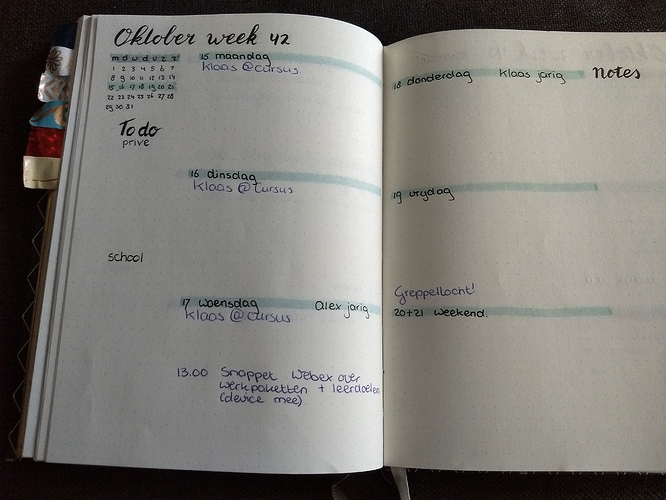 Oktober week 42
m d w d v z z
1 2 3 4 5 6 7
8 9 10 11 12 13 14
15 16 17 18 19 20 21
22 23 24 25 26 27 28
29 30 31
To do
prive
school
15 maandag
Klaas @cursus
16 dinsdag
Klaas @cursus
17 woensdag Alex jarig
Klaas @cursus
13.00 Snappet Webex over
werkpakketten + leerdoelen
(device mee)
18 donderdag Klaas jarig
19 vrydag
Greppeltocht!
20+21 weekend.
Notes